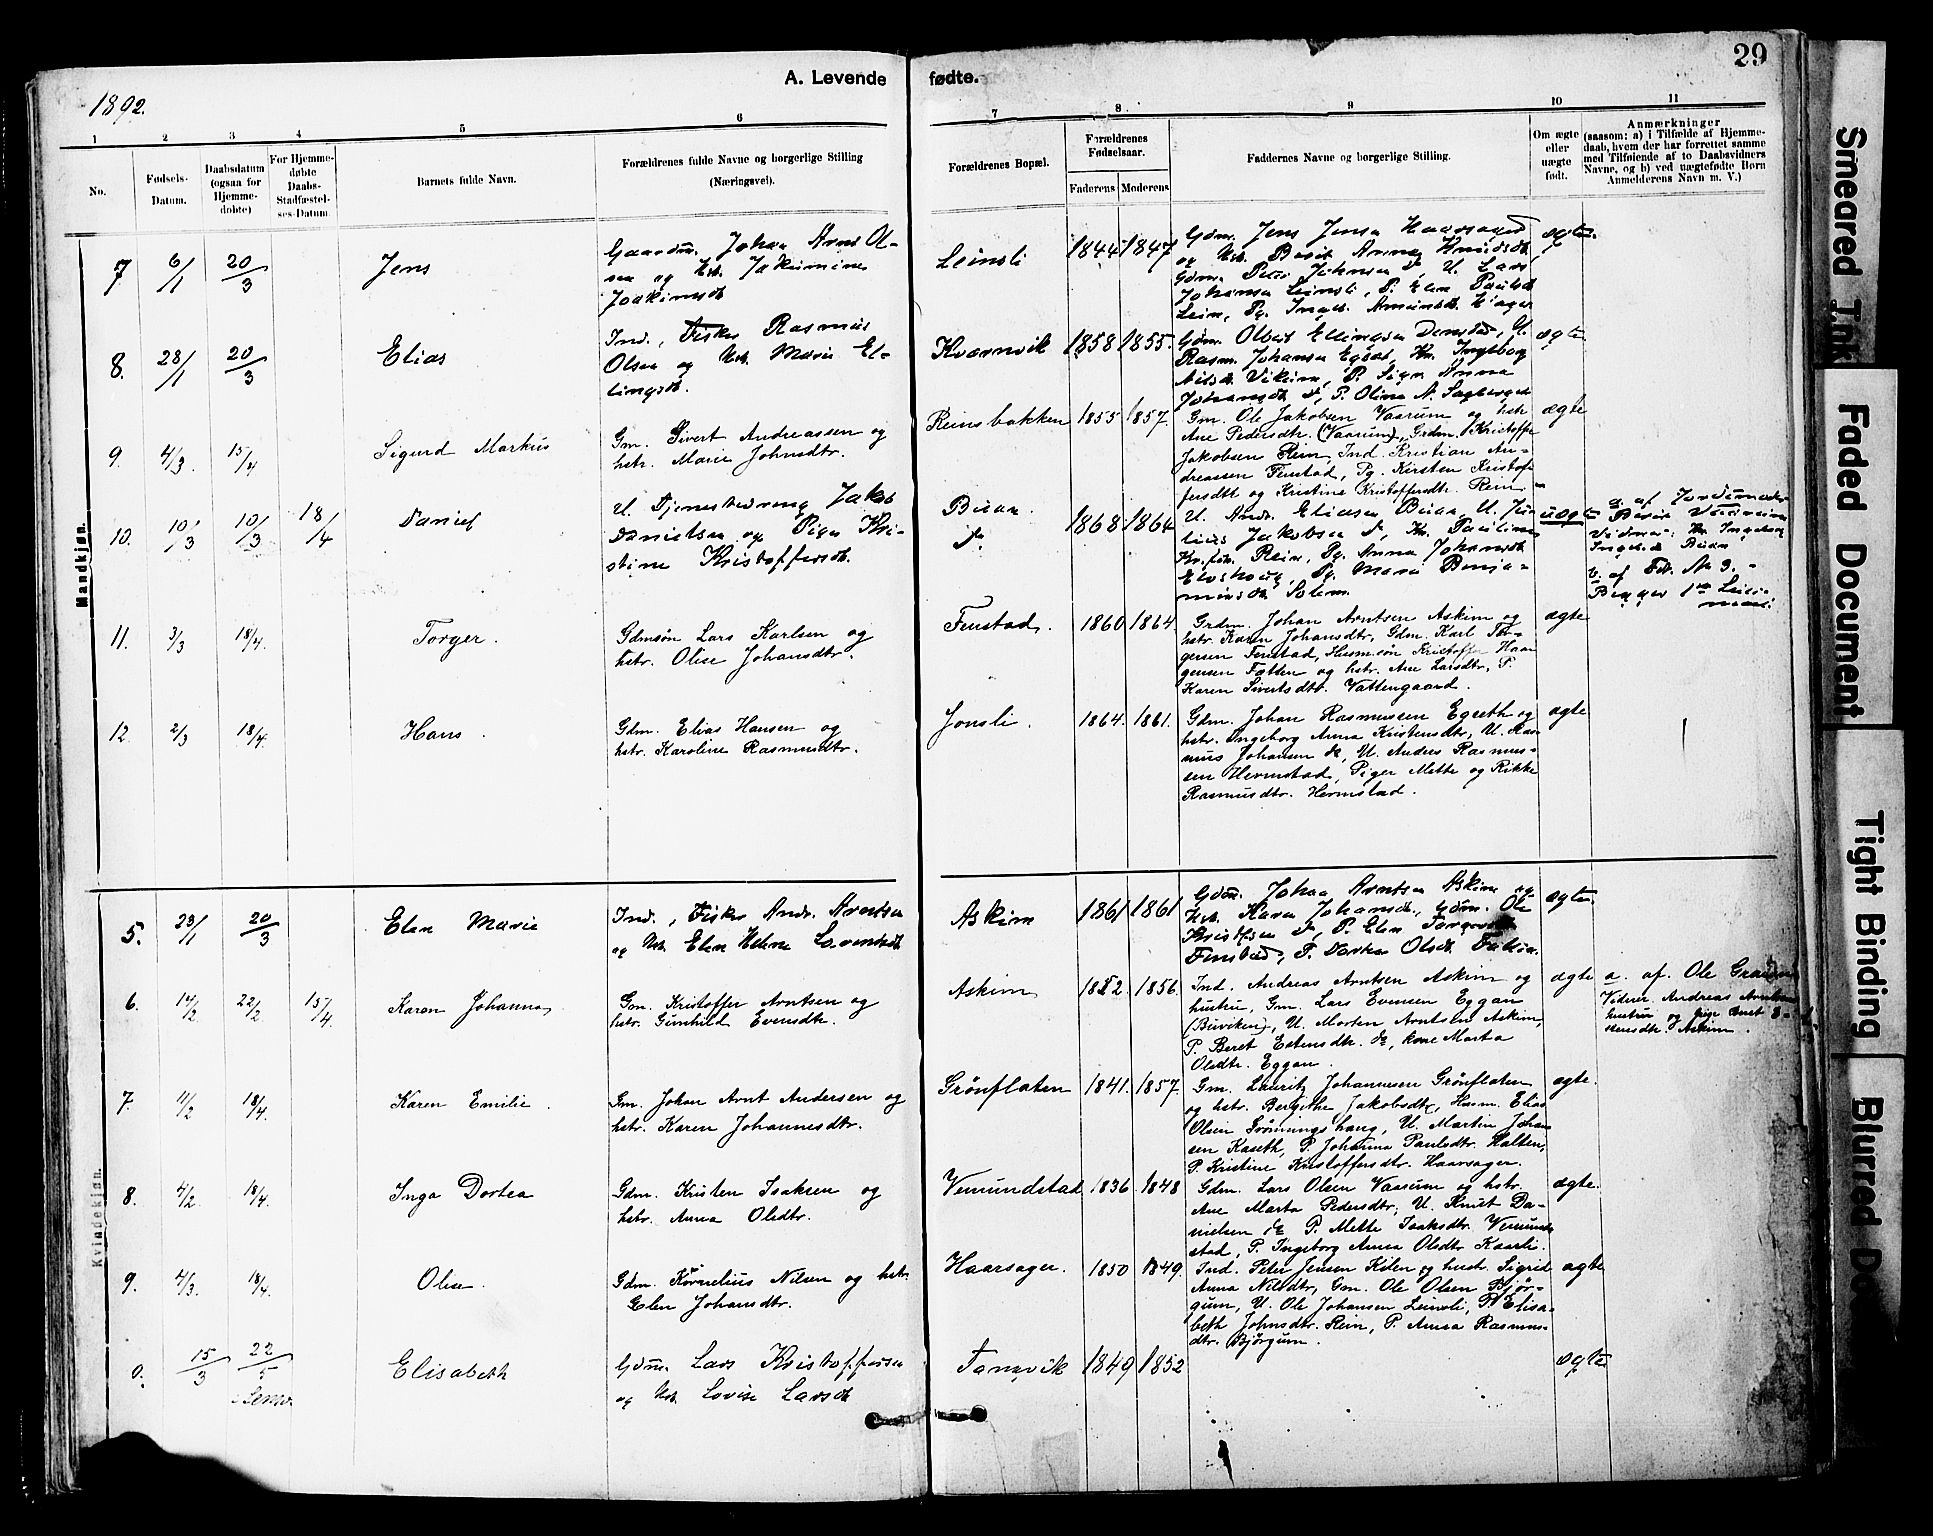 A. Levende fødte.
29
1892.
1 2 3 4 5 6 7 8 9 10 11
No.
Fødsels-
Datum.
Daabsdatum
(ogsaa for
Hjemme-
døbte)
For Hjemme-
døbte
Daabs-
Stadfæstel-
ses-Datum.
Barnets fulde Navn.
Forældrenes fulde Navne og borgerlige Stilling
(Næringsvei).
Forældrenes Bopæl.
Forældrenes
Fødselsaar.
Faderens Moderens
Faddernes Navne og borgerlige Stilling.
Om ægte
eller
uægte
født.
Anmærkninger
(saasom: a) i Tilfælde af Hjemme-
daab, hvem der har forrettet samme
med Tilføiende af to Daabsvidners
Navne, og b) ved uægtefødte Børn
Anmelderens Navn m. V.)
Mandkjøn.
7 6/1 20/3 Jens
Gaardm. Johan Arnt Ol-
sen og Hst. Jakumine
Joakimsdt
Leinsli 1844 1847
Gdm. Jens Jensen Haarsager
og Hst. Berit Anna Knudsdt,
Gdm. Peter Johnsen d°, U. Lars
Johansen Leinsli, P. Elen Paulsdt
Leim, Pg. Inger Amundsdt
ægte.
8. 28/1 20/3 Elias
Ind., Fisker Rasmus
Olsen og Hst. Marie El-
lingsdt.
Kvernvik 1858 1855.
Gdm. Olbert Ellingsen Denstad, U.
Rasm. Johansen Egset, Kn. Ingeborg
Nilsdt. Vikan, P. Sign. Anna
Johansdt d°, P. Olina A. Sagberget
ægte
9. 4/3 15/4 Sigurd Markus
Gm. Sivert Andreassen og
hstr. Marie Johnsdtr.
Reinsbakken 1855 1857.
Gm. Ole Jakobsen Vaarum og hstr
Ane Pedersdtr. (Vaarum), Grdm. Kristoffer
Jakobsen Rein, Ind. Kristian An-
dreassen Fenstad, Pg. Kirsten Kristof-
fersdtr og Kristine Kristoffersdtr. Rein
ægte
10. 10/3 10/3 18/4 Daniel
U. Tjenestedreng Jakob
Danielsen og Pige Kri-
stine Kristoffersdt.
Buan
d°. 1868 1864
U. Andr. Eliasen Buan, U. Ju-
lius Jakobsen d°, Kn. Pauline
Kr.fdt. Rein, Pg. Anna Johansdt
Pg. Marie Benja-
minsdt Solem.
uægte
a. af Jordemoder
Berit
Vidner: Kr. Ingebr.
Buan
b. af Fdr. No 3. -
Begges 1ste Leier-
maal
11. 3/3 18/4. Torger.
Gdmsøn Lars Karlsen og
hstr. Oline Johansdtr.
Fenstad. 1860 1864.
Grdm. Johan Arntsen Askim og
hstr. Karen Johansdtr, Gdm. Karl Tor-
gersen Fenstad, Husm.søn Kristoffer Haa-
gensen Fatten og hstr. Ane Larsdtr, P.
Karen Sivertsdtr. Vattengaard.
ægte
12. 2/3 18/4. Hans.
Gdm. Elias Hansen og
hstr. Karoline Rasmusdtr.
Jonsli. 1864. 1861.
Gdm. Johan Rasmussen Egseth og
hstr. Ingeborg Anna Kristensdtr, U. Ras-
mus Johansen do, U. Anders Rasmus-
sen Hermstad, Piger Mette og Rikke
Rasmusdtr. Hermstad.
ægte
Kvindekjøn.
5. 23/1 20/3 Elen Marie
Ind., Fisker Andr. Arntsen
og Hst. Elen Helene Lorentsdt
Askim 1861 1861
Gdm. Johan Arntsen Askim og
Hst. Karen Johansdt., Gdm. Ole
Kristofsen d°, P. Elen Torgersdt
Fenstad, P. Dortea Olsdt.
ægte.
6. 14/2 22/2 15/4. Karen Johanna
Gm. Kristoffer Arntsen og
hstr. Gunhild Evensdtr.
Askim 1852. 1856.
Ind. Andreas Arntsen Askim og
hustru, Gm. Lars Evensen Eggan
(Beiviken), U. Morten Arntsen Askim,
P. Beret Estensdtr. do, kone Marta
Olsdtr. Eggan.
ægte
a. af. Ole
Vidner. Andreas Arntsen
hustru og pige Beret E-
stensdtr. Askim.
7. 11/2 18/4. Karen Emilie.
Gm. Johan Arnt Andersen og
hstr. Karen Johannesdtr.
Grönflaten 1841. 1857.
Gm. Lauritz Johannesen Grönflaten
og hstr. Bergithe Jakobsdtr, Husm. Elias
Olsen Grönningshaug, U. Martin Johan-
sen Kaseth, P. Johanna Paulsdtr. Halten,
P. Kristine Kristoffersdtr. Haarsager.
ægte.
8. 4/2 18/4. Inga Dortea
Gdm. Kristen Isaksen og
hstr. Anna Olsdtr.
Vemundstad 1836 1848
Gdm. Lars Olsen Vaarum og hstr.
Ane Marta Pedersdtr, U. Knut Da-
nielsen do P. Mette Isaksdtr. Vemund-
stad, P. Ingeborg Anna Olsdtr. Kaarli.
ægte.
9. 4/3. 18/4. Oline.
Gdm. Kornelius Nilsen og hstr
Elen Johansdtr.
Haarsager. 1850 1849.
Ind. Peter Jensen Kilen og hustr. Sigrid
Anna Nilsdtr, Gm. Ole Olsen Bjør-
gum, U. Ole Johansen Leinsli, P. Elisa-
beth Johnsdtr. Rein, P. Anna Rasmus-
dtr. Bjørgum.
ægte
0. 15/3 22/5 Elisabeth
Gdm. Lars Kristoffersen
og Hst. Lovise Larsdt
Tannvik 1849 1852
ægte
Smeared Ink
Faded Document
Tight Binding
Blurred Do